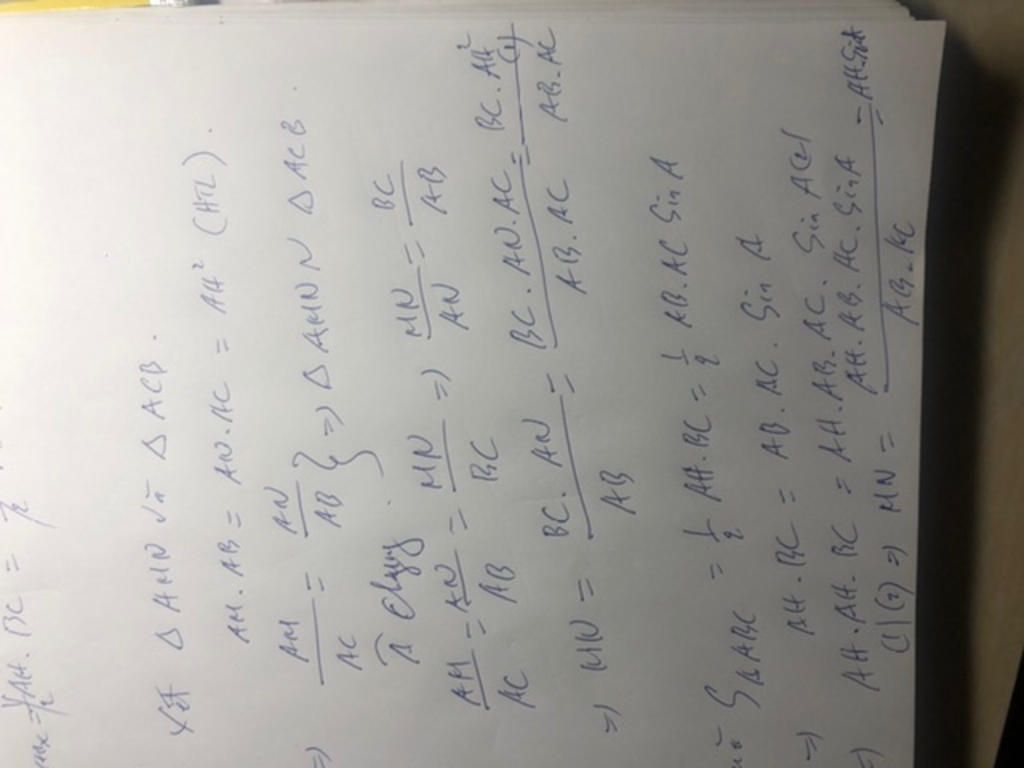 = 1/2 AH.BC =
Xét Δ AMN và Δ ACB.
AM.AB = AN.AC = AH² (HTL).
=> AM/AC = AN/AB } => Δ AMN ∽ Δ ACB.
Â chung
AM/AC = AN/AB = MN/BC => MN/AN = BC/AB
=> MN = BC.AN/AB = BC.AN.AC/AB.AC = BC.AH²/AB.AC (1)
S ΔABC = 1/2 AH.BC = 1/2 AB.AC Sin A
=> AH.BC = AB.AC. Sin A
=> AH.AH.BC = AH.AB.AC. Sin A (2)
(1)(2) => MN = AH.AB.AC.Sin A/AB.AC = AH Sin A